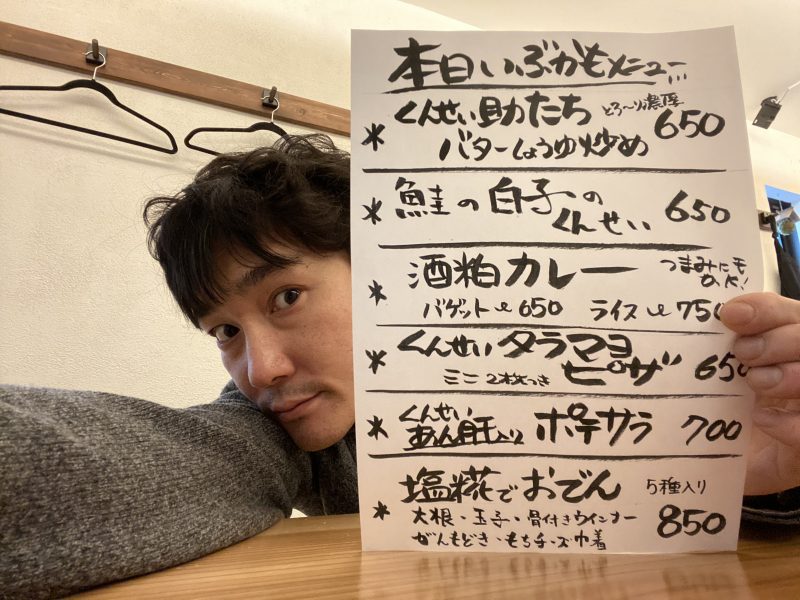 本日いぶかもメニュー
＊くんせい助たち とろ〜り濃厚 650
バターしょうゆ炒め
＊鮭の白子の 650
くんせい
＊酒粕カレー つまみにも
O.K!
バゲットと650 ライスと750
＊くんせいタラマヨ
ミニ2枚つき ピザ 650
＊くんせい
あん肝入り ポテサラ 700
＊塩糀でおでん 5種入り
大根・玉子・骨付きウインナー 850
がんもどき・もちチーズ巾着